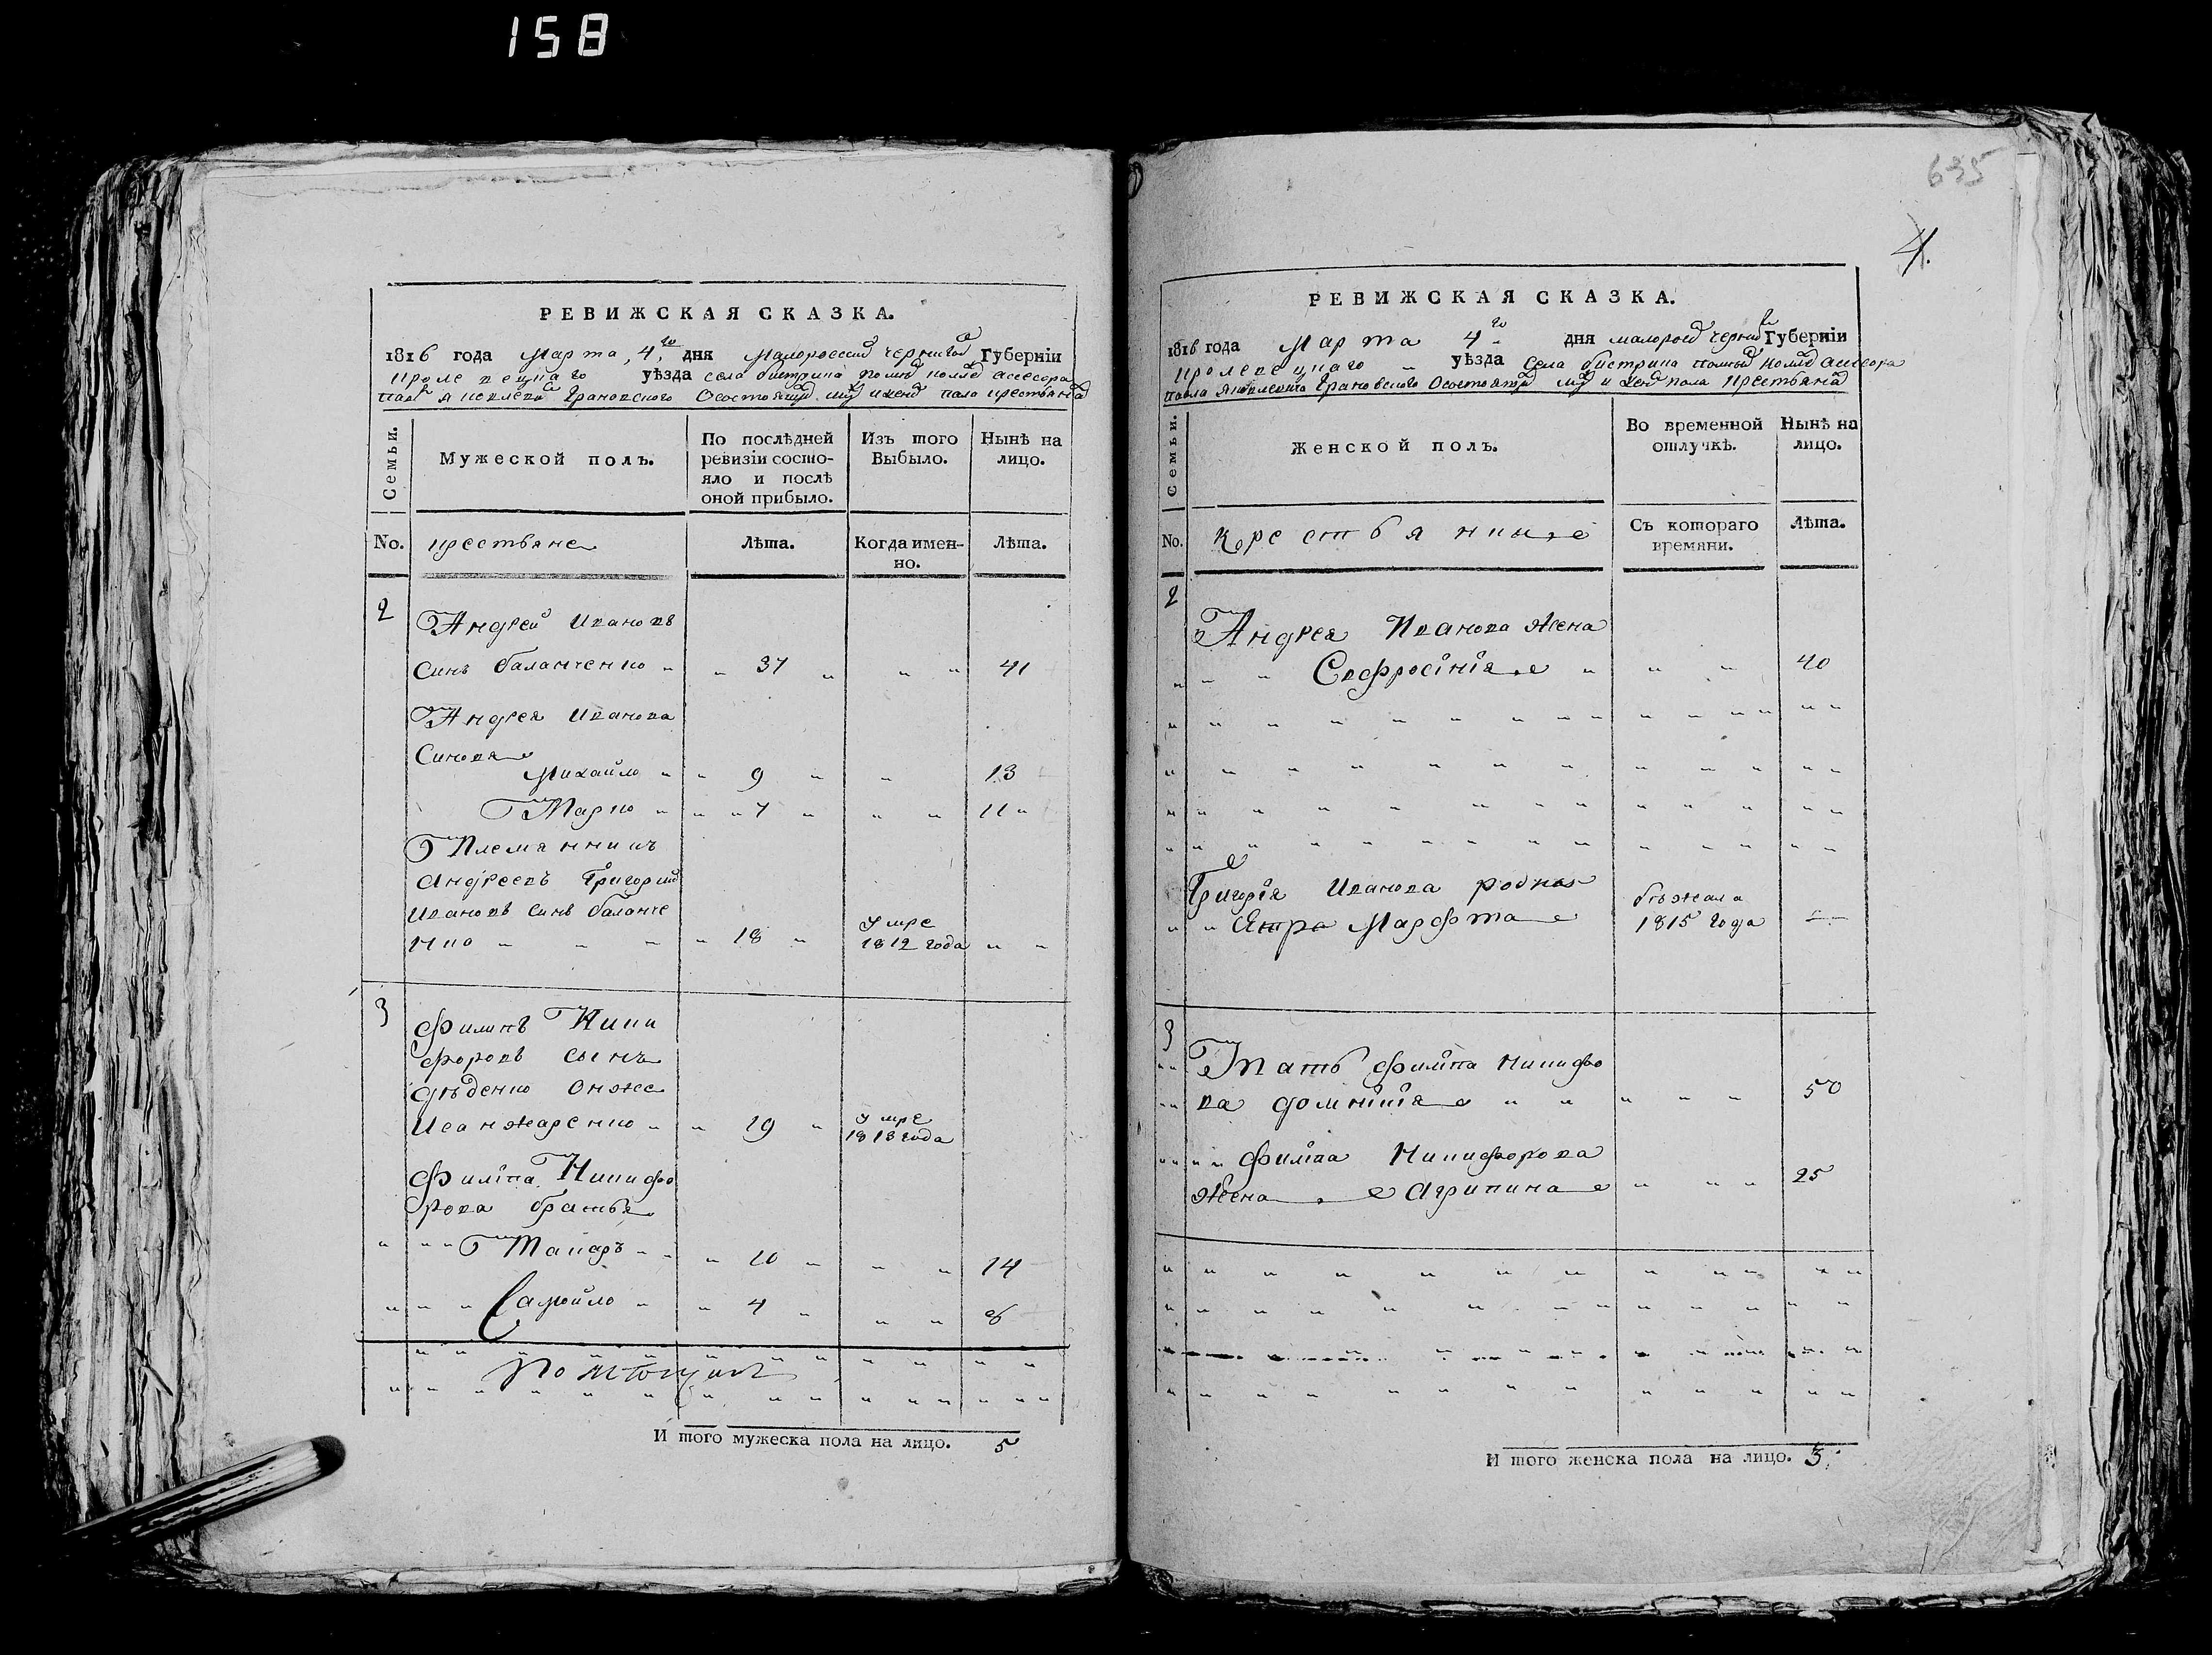 158
РЕВИЖСКАЯ СКАЗКА.
1816 года Марта 4го дня Малоросий Чернигов Губернїи
Кролевецкаго уѣзда села бистрика асесора
Грановского пола крестьянах
Семьи.
Мужеской полъ.
По послѣдней ревизїи состо-
яло и послѣ
оной прибыло.
Изъ того
Выбыло.
Нынѣ на
лицо.
No.
крестьяне
Лѣта.
Когда имен-
но.
Лѣта.
2
Андрей Ивановъ
Синъ баланченко 37 41
Андрея Иванова
Синовя
Михайло 9 13
Марко 7 11
Племянникъ
Андреевъ Григорий
Ивановъ Синъ баланче
нко 18 умре 1812 года
3
Филипъ Ники
форовъ сынъ
дѣденко онже
умре
19 1813 года
Филїпа Никифо
рова братья
Макаръ 10 14
Самойло 4 8
И того мужеска пола на лицо. 5
635
4.
РЕВИЖСКАЯ СКАЗКА.
1816 года Марта 4го дня малорос черниг Губернїи
кролевецкаго уѣзда Села бистрика асесора
павла Яковлевича Грановского пола крестьянах
Семьи.
Женской полъ.
Во временной
отлучкѣ.
Нынѣ на
лицо.
No.
Крестьяники
Съ котораго
времяни.
Лѣта.
2
Андрея Иванова жена
Евфросїнїя 40
Григорїя Иванова родная бѣжала
Сестра Марфта 1815 года
3
Мать Филїпа Никифо
ва домнїкїя 50
Филїпа Никифорова
жена Агрипина 25
И того женска пола на лицо. 3.